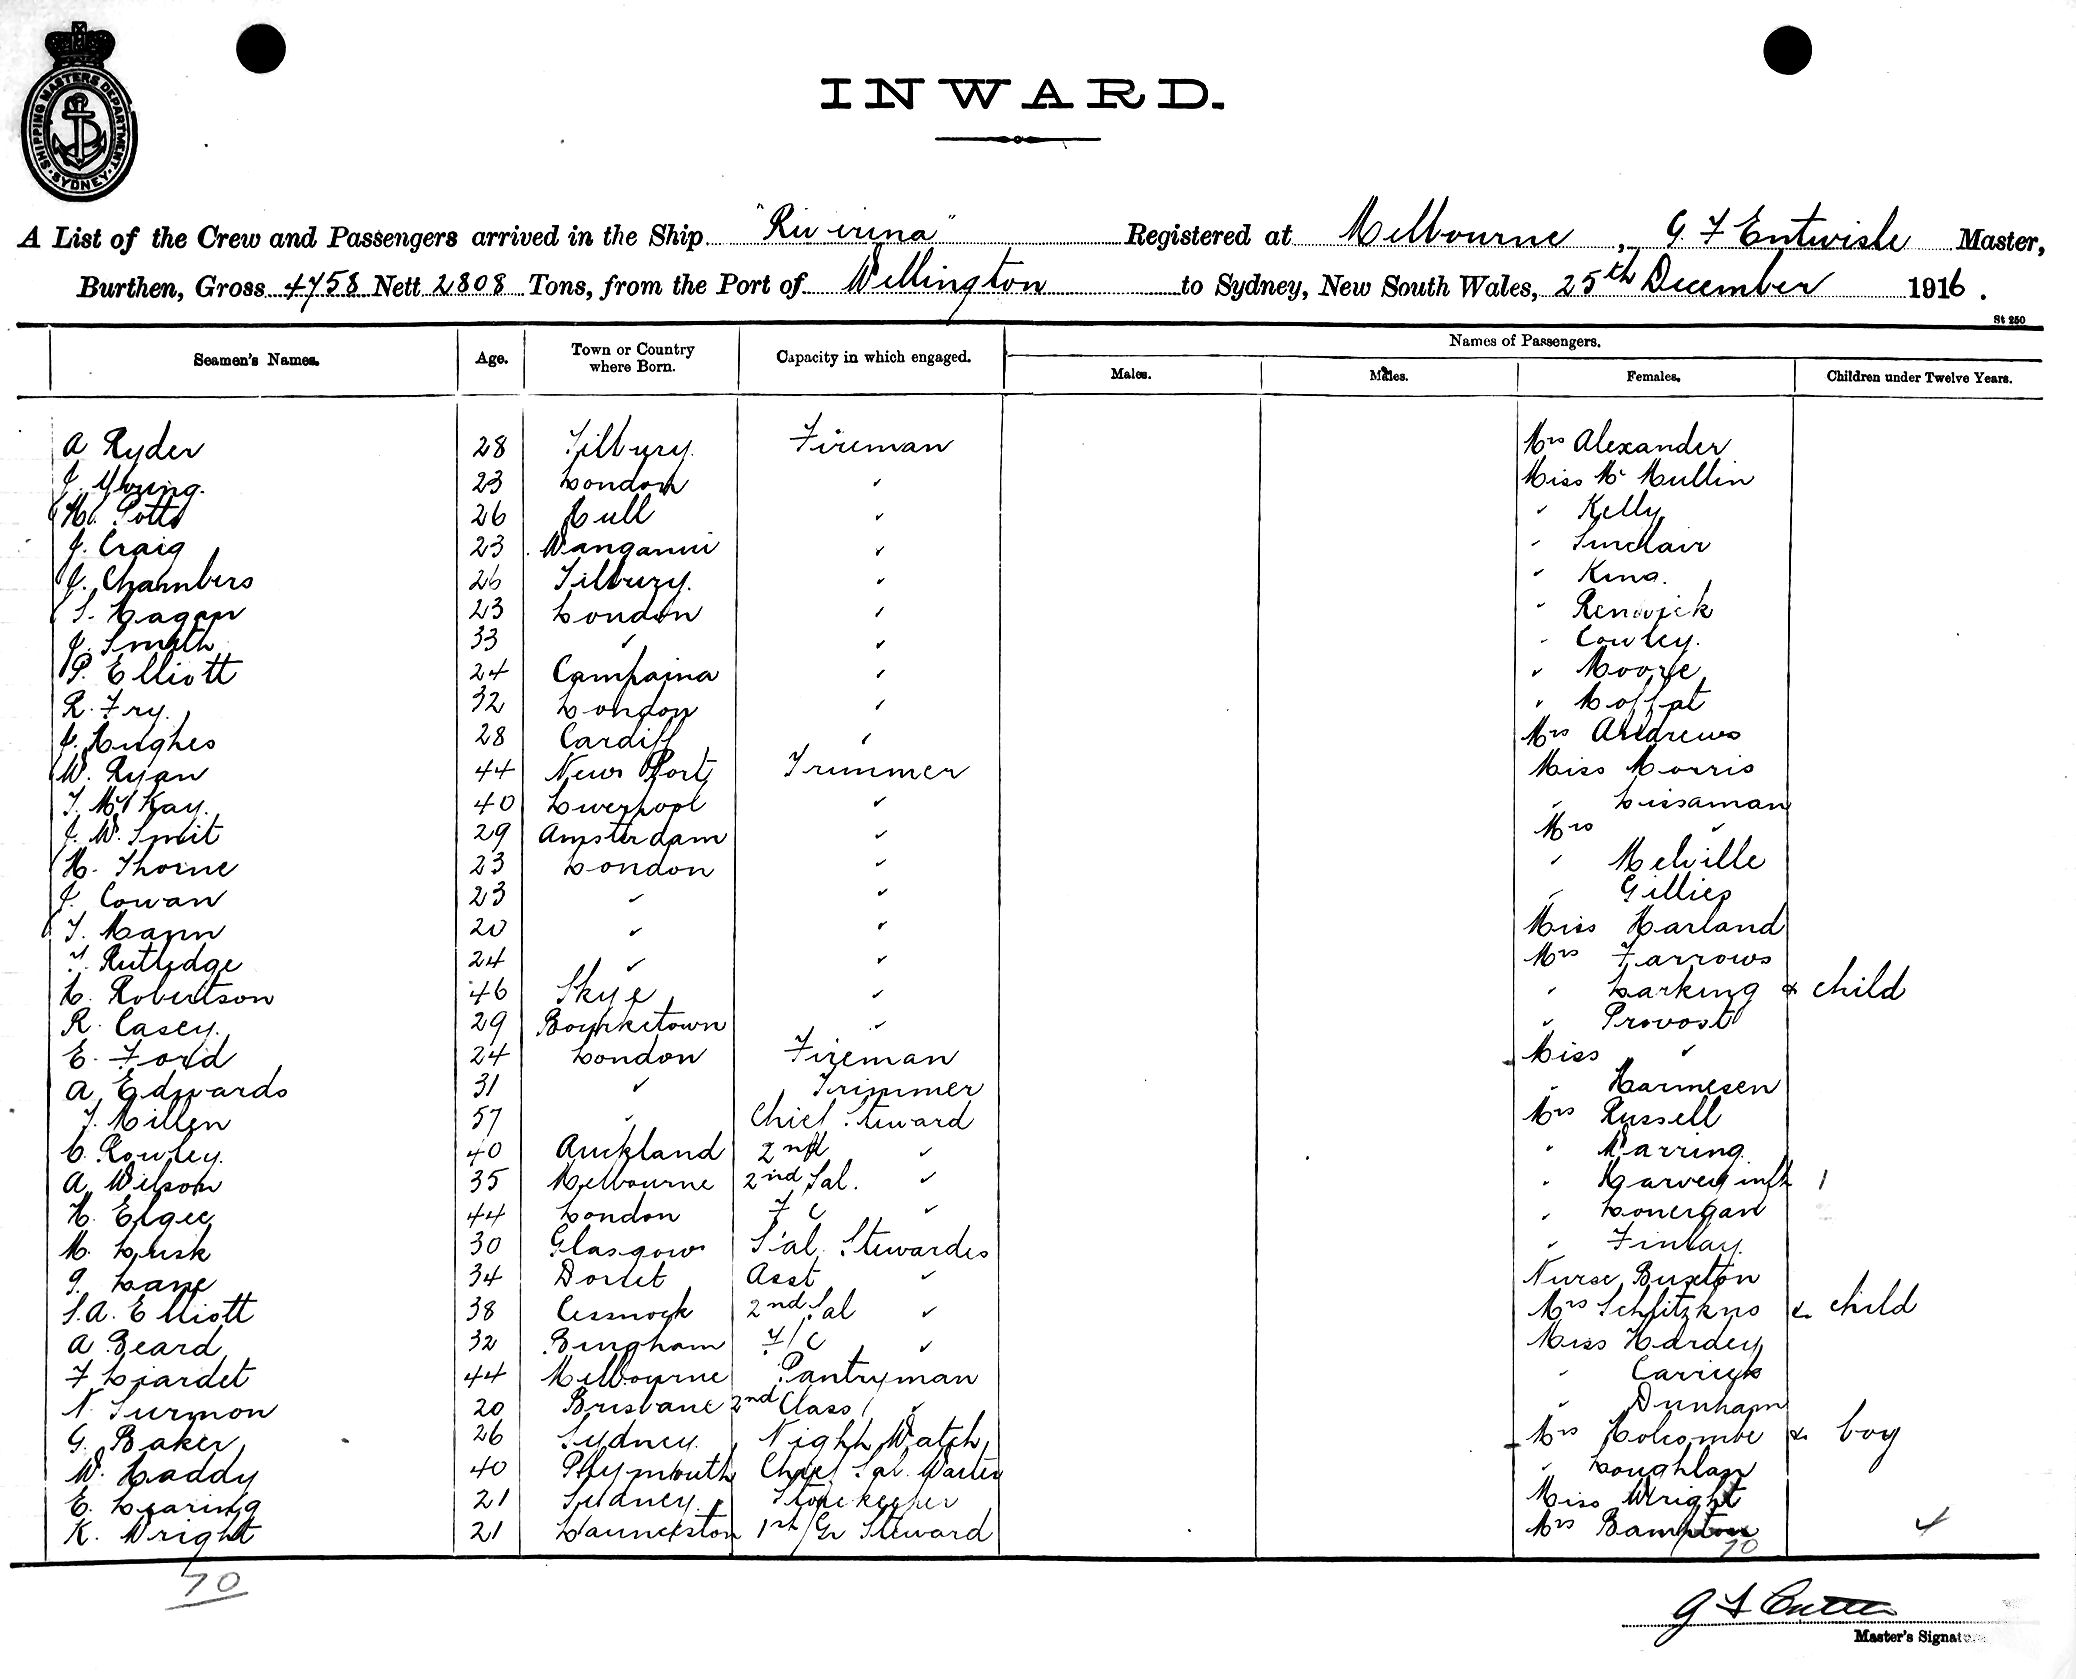 SHIPPING MASTERS DEPARTMENT
SYDNEY
INWARD.
A List of the Crew and Passengers arrived in the Ship "Riverina" Registered at Melbourne, G. F Entwisle Master,
Burthen, Gross 4758 Nett 2808 Tons, from the Port of Wellington to Sydney, New South Wales, 25th December 1916.
St 250
Seamen's Names. Age. Town or Country where Born. Capacity in which engaged. Names of Passengers.
Males. Males. Females. Children under Twelve Years.
A Ryder 28 Tilbury. Fireman Mrs Alexander
J. Young. 23 London " Miss Mc Mullin
H. Potts 26 Hull " " Kelly
J. Craig 23 Wanganui " " Sinclair
J. Chambers 26 Tilbury. " " King.
S. Hagen 23 London " " Renwick
J. Smith 33 " " " Cowley.
P. Elliott 24 " " Moore
R. Fry. 32 London " " Moffat
J. Hughes 28 Cardiff " Mrs Andrews
W. Ryan 44 New Port Trimmer Miss Morris
T. McKay. 40 Liverpool " " Lissaman
J. W. Smit 29 Amsterdam " Mrs "
H. Thorne 23 London " " Melville
J. Cowan 23 " " " Gillies
T. Mann 20 " " Miss Harland
T. Rutledge 24 " " Mrs Farrows
H. Robertson 46 Skye " " Larking & child
R. Casey. 29 Bourketown " " Provost
E. Ford 24 London Fireman Miss "
A. Edwards 31 " Trimmer " Harmesen
T. Millen 57 " Chief Steward Mrs Russell
C. Rowley. 40 Auckland 2nd " " Warring
A. Wilson 35 Melbourne 2nd Sal. " " Harvey inft 1
H. Elgee 44 London F C " " Lonergan
M. Lusk 30 Glasgow Sal. Stewardes " Finlay.
G. Lane 34 Dorset Asst " Nurse Buxton
S. A. Elliott 38 Cessnock 2nd Sal " Mrs & child
A Beard 32 Bingham F/C " Miss Hardey
F Liardet 44 Melbourne Pantryman " Carrick
N. Surmon 20 Brisbane 2nd Class " " Dunham
G. Baker 26 Sydney. Night Watch Mrs Holcombe & boy
W. Laddy 40 Plymouth Chief Sal. Waiter " Loughlan
E. Learing 21 Sydney. Storekeeper Miss Wright
K. Wright 21 Launceston 1st Gr Steward Mrs Bampton 4
70
70
Master's Signature